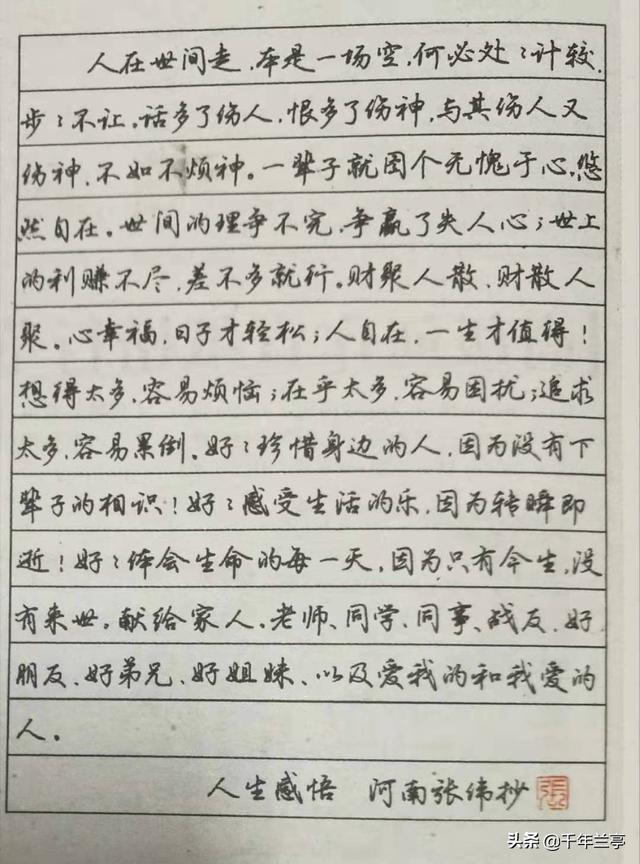 人在世间走，本是一场空，何必处〻计较，
步〻不让。话多了伤人，恨多了伤神，与其伤人又
伤神，不如不烦神。一辈子就图个无愧于心，悠
然自在。世间的理争不完，争赢了失人心；世上
的利赚不尽，差不多就行。财聚人散，财散人
聚。心幸福，日子才轻松；人自在，一生才值得！
想得太多，容易烦恼；在乎太多，容易困扰；追求
太多，容易累倒。好〻珍惜身边的人，因为没有下
辈子的相识！好〻感受生活的乐，因为转瞬即
逝！好〻体会生命的每一天，因为只有今生，没
有来世。献给家人、老师、同学、同事、战友、好
朋友、好弟兄、好姐妹、以及爱我的和我爱的
人。
人生感悟 河南张纬抄 張
头条 @千年兰亭